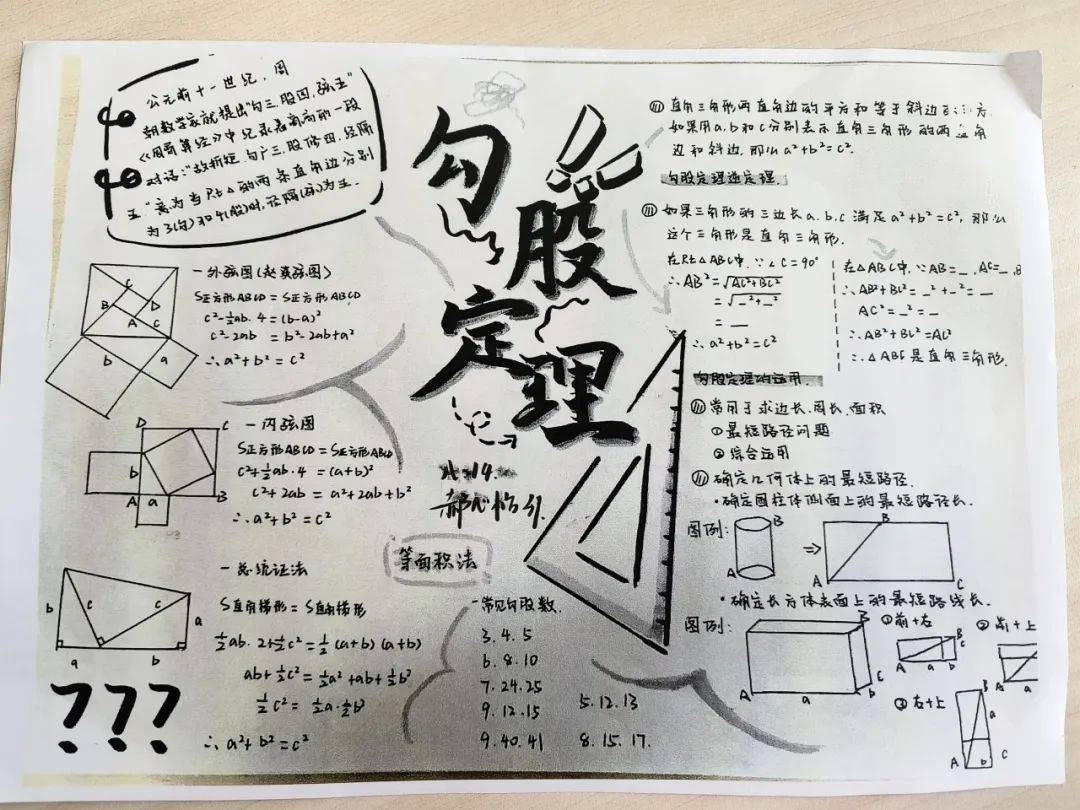 公元前十一世纪,周
朝数学家就提出“勾三,股四,弦五”
《周髀算经》中记录着商高的一段
对话:“故折矩勾广三,股修四,经隅
五”意为当Rt△的两条直角边分别
为3(勾)和4(股)时,径隅(弦)为五.
勾股定理
八.14.
等面积法
一外弦图(赵爽弦图)
S正方形ABCD=S正方形ABCD
c²-½ab·4=(b-a)²
c²-2ab=b²-2ab+a²
∴a²+b²=c²
C
B
D
A
C
b
a
一内弦图
S正方形ABCD=S正方形ABCD
c²+½ab·4=(a+b)²
c²+2ab=a²+2ab+b²
∴a²+b²=c²
D
C
b
A
a
B
一总统证法
S直角梯形=S直角梯形
½ab·2+½c²=½(a+b)(a+b)
ab+½c²=½a²+ab+½b²
½c²=½a·½b)
∴a²+b²=c²
b
c
c
a
a
b
???
一常见勾股数.
3.4.5
6.8.10
7.24.25
9.12.15
5.12.13
9.40.41
8.15.17.
直角三角形两直角边的平方和等于斜边 方.
如果用a,b和c分别表示直角三角形的两直角
边和斜边,那么a²+b²=c².
勾股定理逆定理.
如果三角形的三边长a.b.c满足a²+b²=c²,那么
这个三角形是直角三角形.
在Rt△ABC中,∵∠C=90°
∴AB²=√AC²+BC²
=√_²+_²
=_
∴a²+b²=c²
在△ABC中,∵AB=_,AC=_,B
∴AB²+BC²=_²+_²=_
AC²=_²=_
∴AB²+BC²=AC²
∴△ABC是直角三角形.
勾股定理的运用.
常用于求边长.周长.面积
①最短路径问题
②综合运用
确定几何体上的最短路径.
·确定圆柱体侧面上的最短路径长.
图例:
B
A
⇒
B
A
C
·确定长方体表面上的最短路线长.
图例:
B
C
A
a
b
①前+左
B
C
A
a
b
②前+上
A
③右+上
B
a
A
b
C